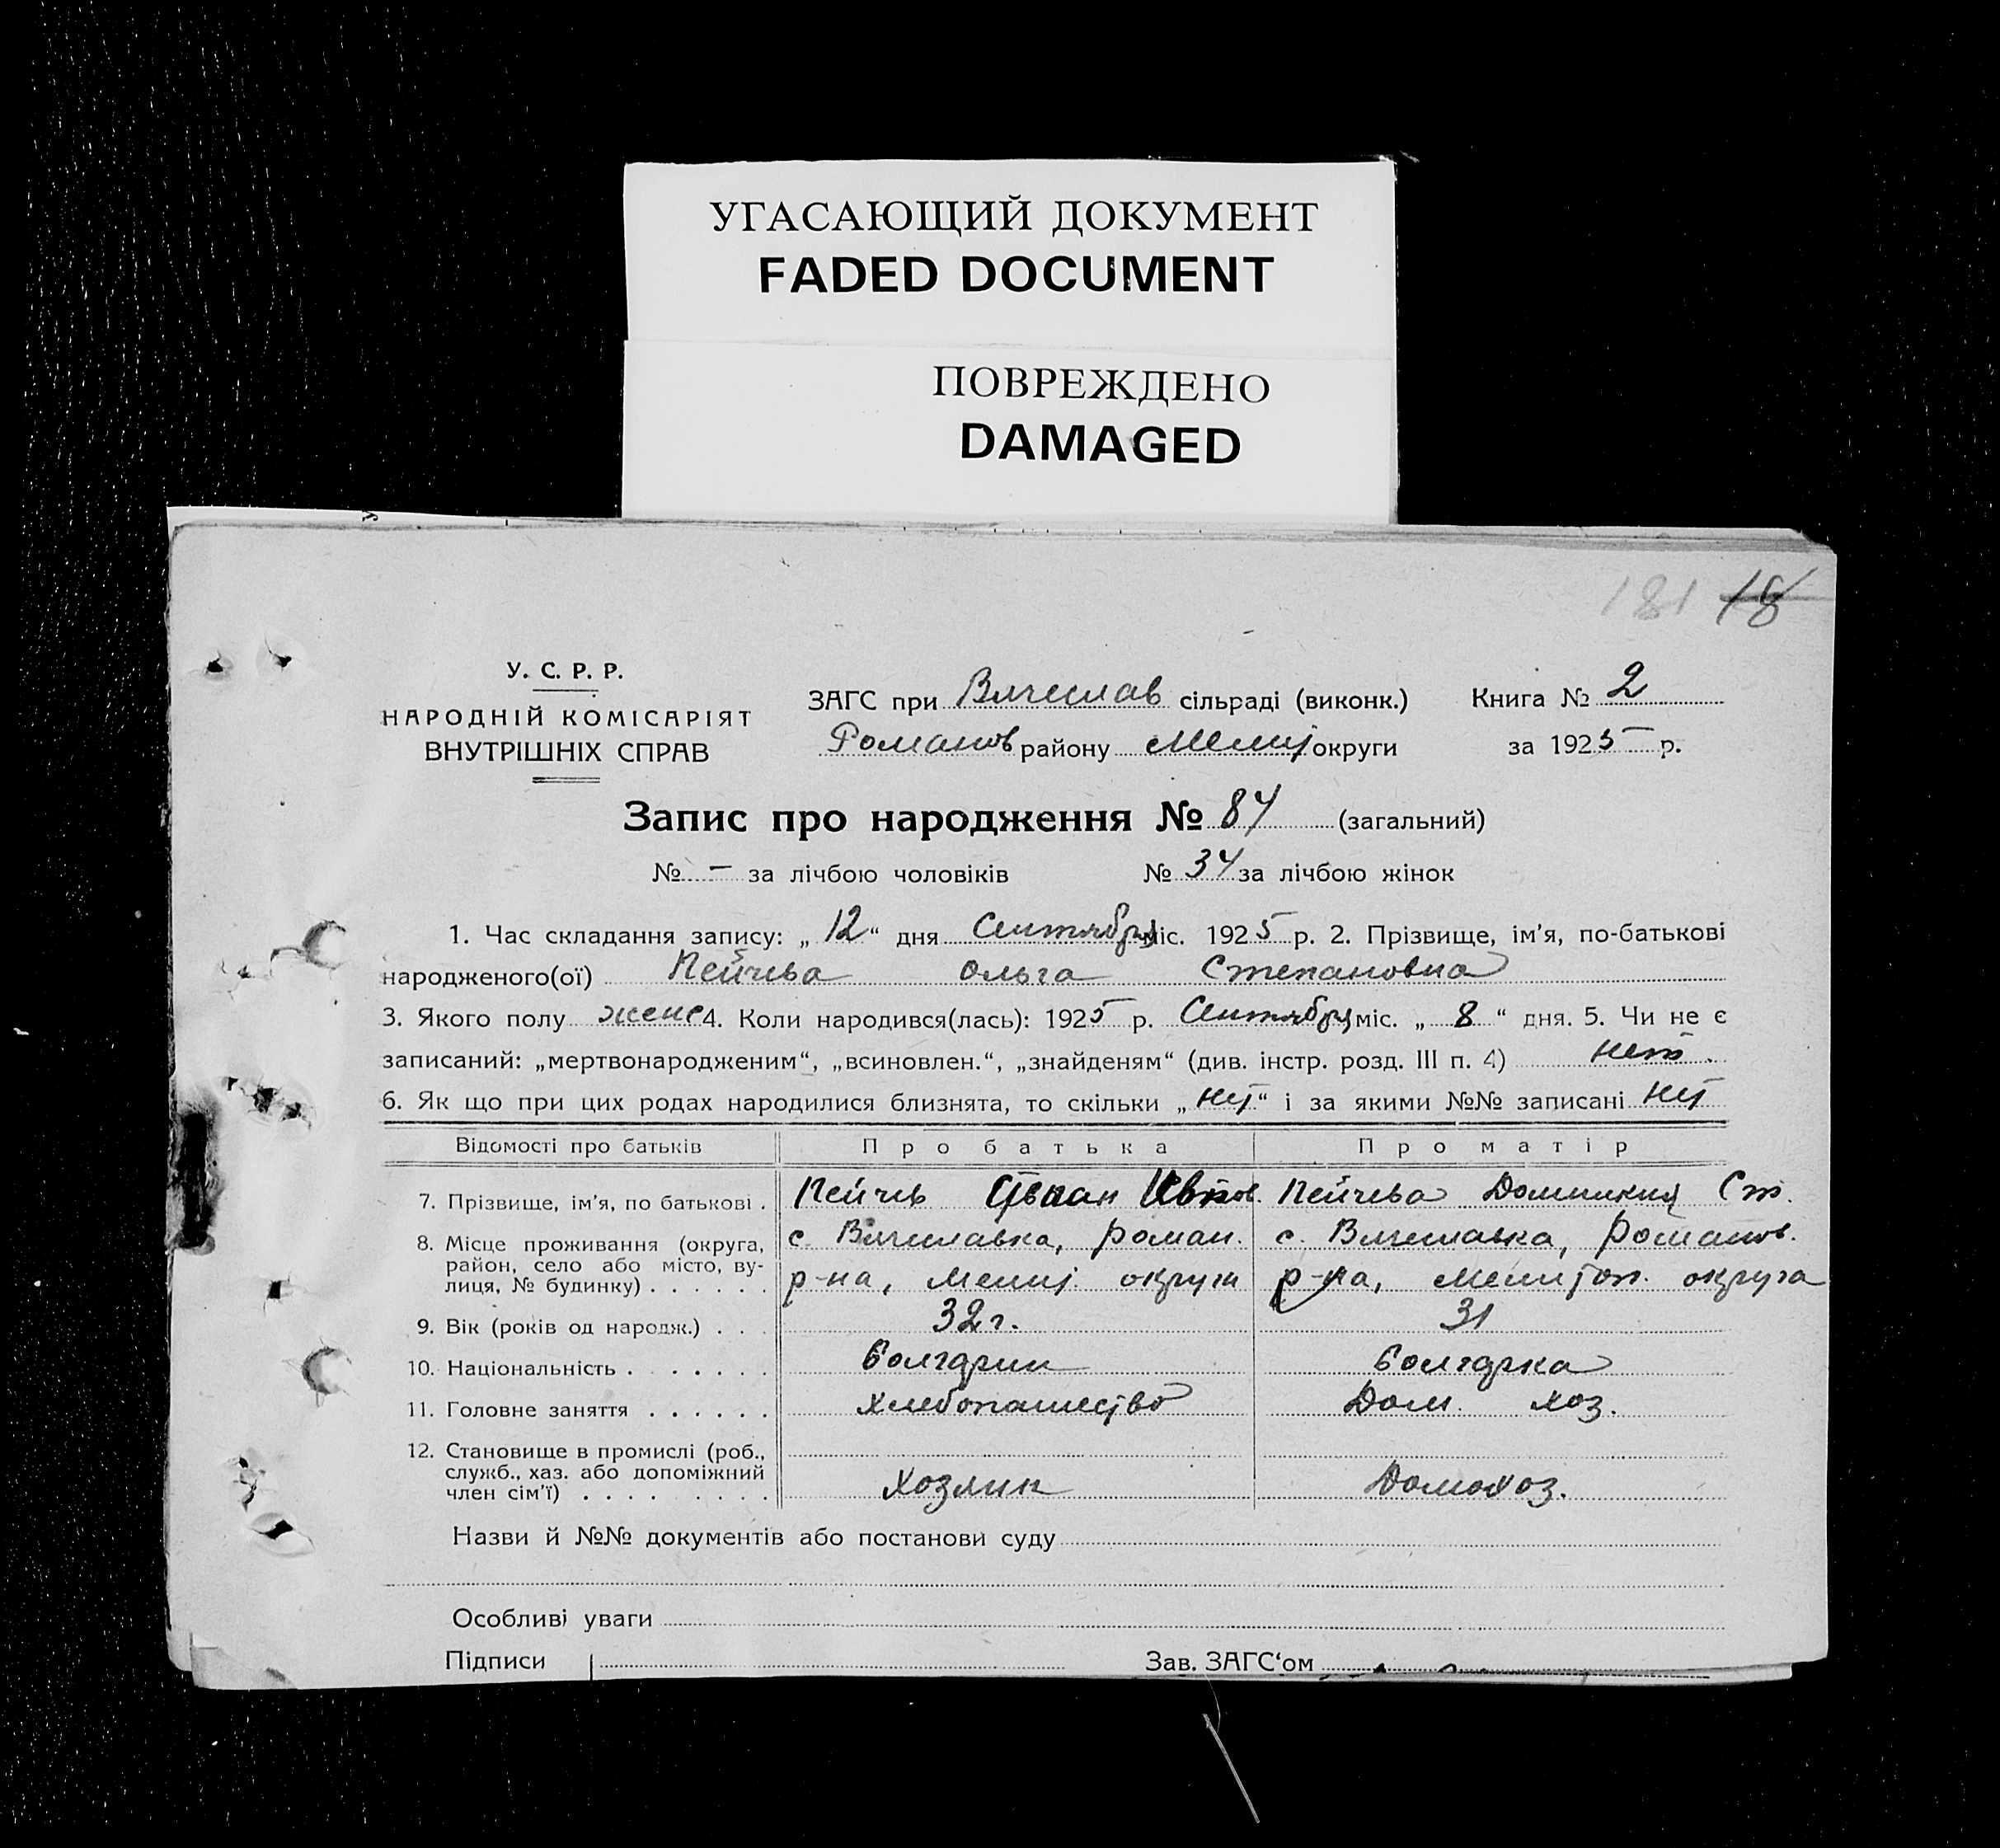 УГАСАЮЩИЙ ДОКУМЕНТ
FADED DOCUMENT
ПОВРЕЖДЕНО
DAMAGED
181 18
У. С. Р. Р.
НАРОДНІЙ КОМІСАРІЯТ
ВНУТРІШНІХ СПРАВ
ЗАГС при Вячеслав сільраді (виконк.)
Романов району Мелит округи
Книга № 2
за 1925 р.
Запис про народження № 84 (загальний)
№ - за лічбою чоловіків № 34 за лічбою жінок
1. Час складання запису: „12“ дня Сентября міс. 1925 р. 2. Прізвище, ім’я, по-батькові
народженого(ої) Пейчева Ольга Степановна
3. Якого полу женс 4. Коли народився(лась): 1925 р. Сентября міс. „8“ дня. 5. Чи не є
записаний: „мертвонародженим“, „всиновлен.“, „знайденям“ (див. інстр. розд. III п. 4) нет.
6. Як що при цих родах народилися близнята, то скільки „нет“ і за якими №№ записані нет
Відомості про батьків Про батька Про матір
7. Прізвище, ім’я, по батькові . Пейчев Пейчева Домникия Ст.
8. Місце проживання (округа, район, село або місто, вулиця, № будинку) . . . . . . с. Вячеславка, Роман. р-на, Мелит. округи с. Вячеславка, Романов. р-на, Мелитоп. округа
9. Вік (років од народж.) . . . 32 г. 31
10. Національність . . . . . . . болгарин болгарка
11. Головне заняття . . . . . . хлебопашество Дом. хоз.
12. Становище в промислі (роб., служб., хаз. або допоміжний член сім’ї) . . . . . . . . хозяин Домохоз.
Назви й №№ документів або постанови суду
Особливі уваги
Підписи Зав. ЗАГС‘ом